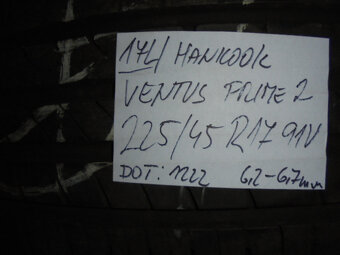 17L/ HANKOOK
VENTUS PRIME 2
225/45 R17 91V
DOT: 1222 6,2-6,7mm